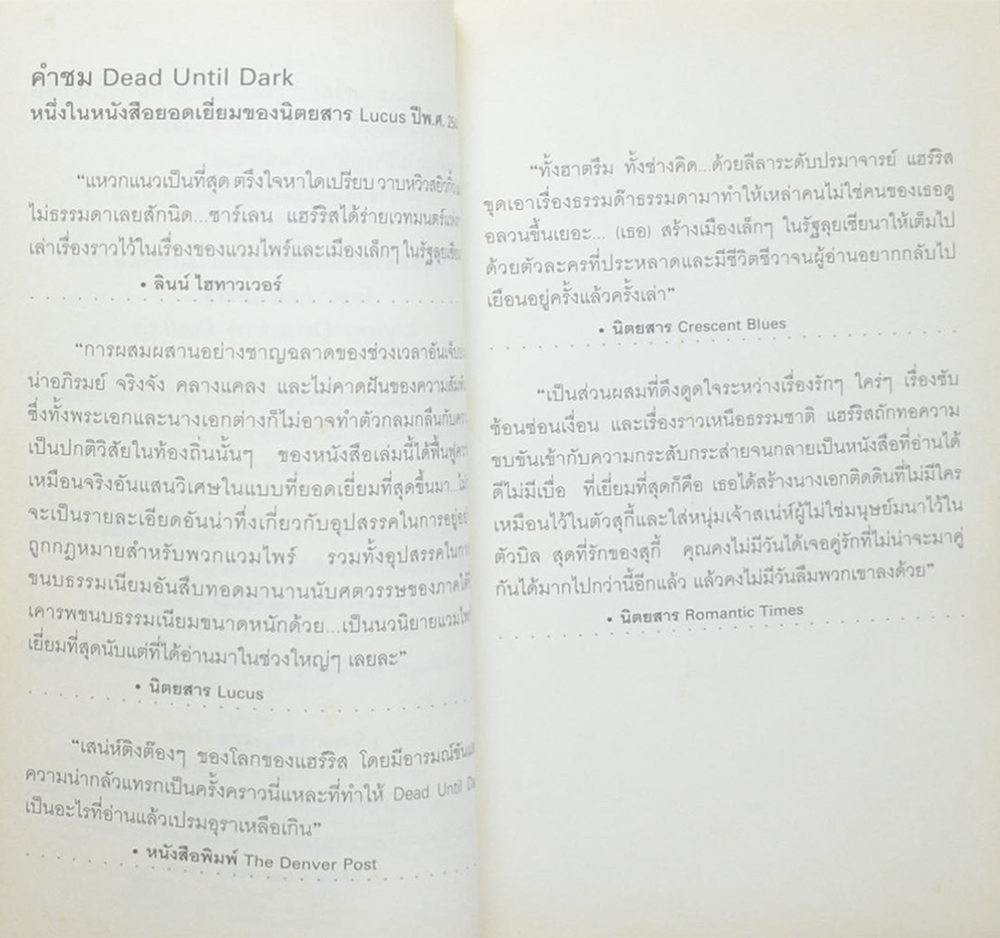 คำชม Dead Until Dark
หนึ่งในหนังสือยอดเยี่ยมของนิตยสาร Lucus ปีพ.ศ.
“แหวกแนวเป็นที่สุด ตรึงใจหาใดเปรียบ วาบหวิวสยิวกิ้ว
ไม่ธรรมดาเลยสักนิด...ชาร์เลน แฮร์ริสได้ร่ายเวทมนตร์
เล่าเรื่องราวไว้ในเรื่องของแวมไพร์และเมืองเล็กๆ ในรัฐลุยเซีย
• ลินน์ ไฮทาวเวอร์
“การผสมผสานอย่างชาญฉลาดของช่วงเวลาอัน
น่าอภิรมย์ จริงจัง คลางแคลง และไม่คาดฝันของความ
ซึ่งทั้งพระเอกและนางเอกต่างก็ไม่อาจทำตัวกลมกลืนกับ
เป็นปกติวิสัยในท้องถิ่นนั้นๆ ของหนังสือเล่มนี้ได้ฟื้นฟู
เหมือนจริงอันแสนวิเศษในแบบที่ยอดเยี่ยมที่สุดขึ้นมา...
จะเป็นรายละเอียดอันน่าทึ่งเกี่ยวกับอุปสรรคในการ
ถูกกฎหมายสำหรับพวกแวมไพร์ รวมทั้งอุปสรรคใน
ขนบธรรมเนียมอันสืบทอดมานานนับศตวรรษของภาค
เคารพขนบธรรมเนียมขนาดหนักด้วย...เป็นนวนิยาย
เยี่ยมที่สุดนับแต่ที่ได้อ่านมาในช่วงใหญ่ๆ เลยละ”
• นิตยสาร Lucus
“เสน่ห์ติงต๊องๆ ของโลกของแฮร์ริส โดยมีอารมณ์ขัน
ความน่ากลัวแทรกเป็นครั้งคราวนี่แหละที่ทำให้ Dead Until
เป็นอะไรที่อ่านแล้วเปรมอุราเหลือเกิน”
• หนังสือพิมพ์ The Denver Post
“ทั้งฮาตรึม ทั้งช่างคิด...ด้วยลีลาระดับปรมาจารย์ แฮร์ริส
ขุดเอาเรื่องธรรมด๊าธรรมดามาทำให้เหล่าคนไม่ใช่คนของเธอดู
อลวนขึ้นเยอะ... (เธอ) สร้างเมืองเล็กๆ ในรัฐลุยเซียนาให้เต็มไป
ด้วยตัวละครที่ประหลาดและมีชีวิตชีวาจนผู้อ่านอยากกลับไป
เยือนอยู่ครั้งแล้วครั้งเล่า”
• นิตยสาร Crescent Blues
“เป็นส่วนผสมที่ดึงดูดใจระหว่างเรื่องรักๆ ใคร่ๆ เรื่องซับ
ซ้อนซ่อนเงื่อน และเรื่องราวเหนือธรรมชาติ แฮร์ริสถักทอความ
ขบขันเข้ากับความกระสับกระส่ายจนกลายเป็นหนังสือที่อ่านได้
ดีไม่มีเบื่อ ที่เยี่ยมที่สุดก็คือ เธอได้สร้างนางเอกติดดินที่ไม่มีใคร
เหมือนไว้ในตัวสุกี้และใส่หนุ่มเจ้าเสน่ห์ผู้ไม่ใช่มนุษย์มนาไว้ใน
ตัวบิล สุดที่รักของสุกี้ คุณคงไม่มีวันได้เจอคู่รักที่ไม่น่าจะมาคู่
กันได้มากไปกว่านี้อีกแล้ว แล้วคงไม่มีวันลืมพวกเขาลงด้วย”
• นิตยสาร Romantic Times